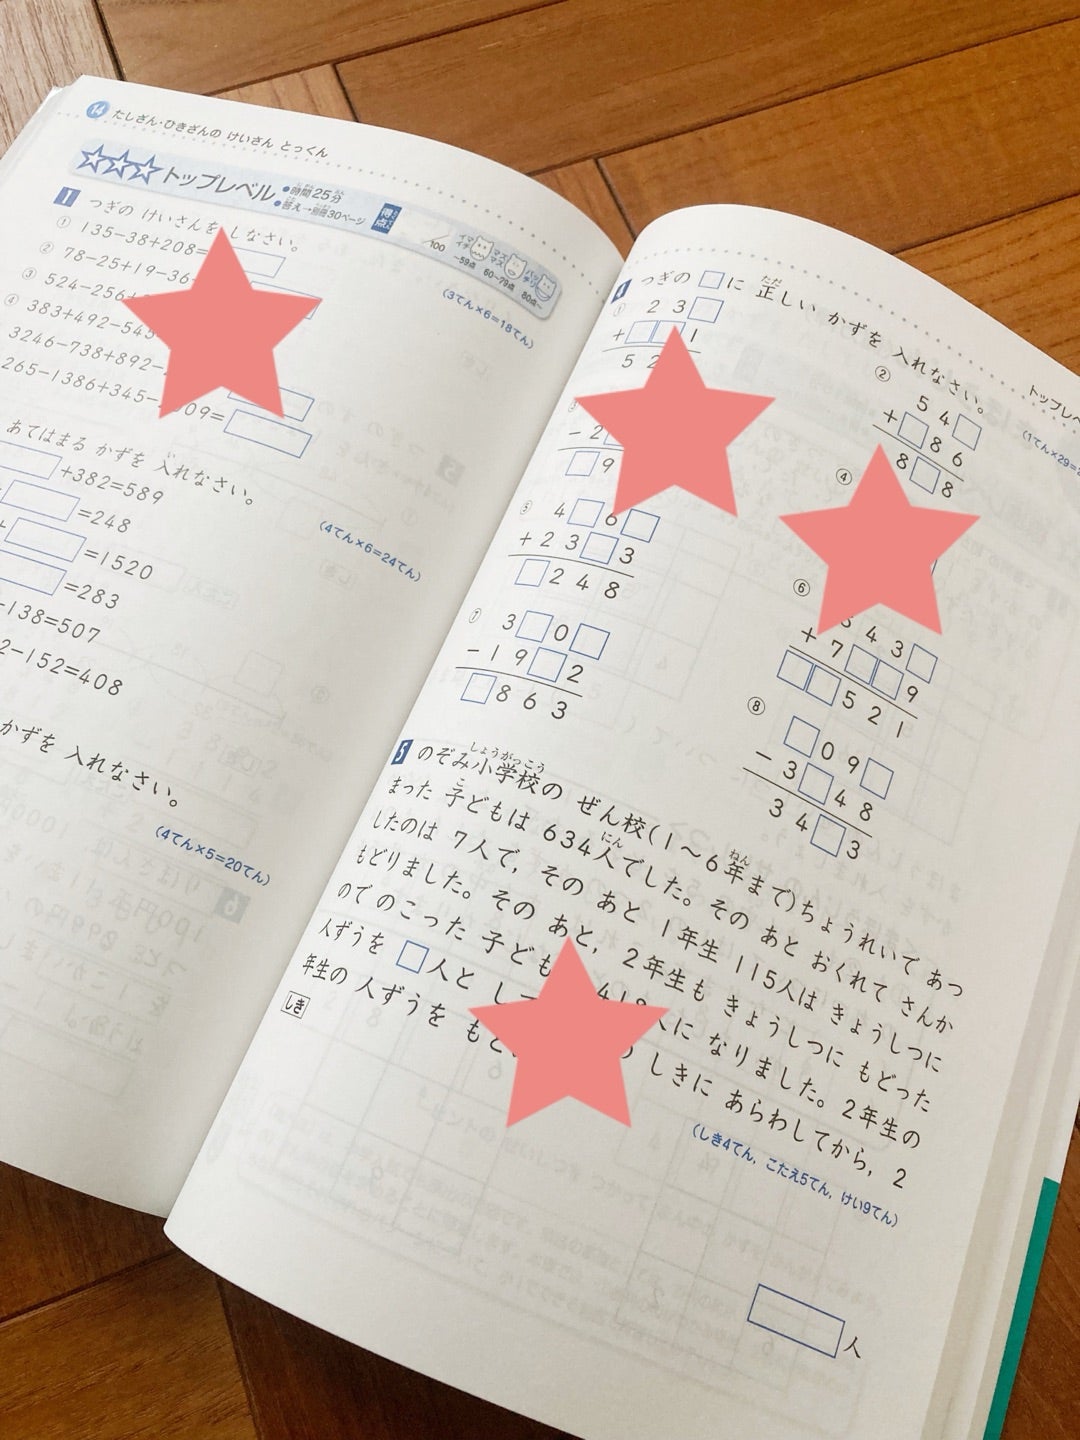 14 たしざん・ひきざんの けいさん とっくん
☆☆☆トップレベル
●時間25分
●答え→別冊30ページ
得点
/100
イマイチ マズマズ バッチリ
~59点 60~79点 80点~
1 つぎの けいさんを しなさい。
(3てん×6=18てん)
① 135-38+208=
② 78-25+19-36
③ 524-256+
④ 383+492-545
3246-738+892-
265-1386+345- 09=
あてはまる かずを 入れなさい。
(4てん×6=24てん)
+382=589
=248
=1520
=283
-138=507
2-152=408
かずを 入れなさい。
(4てん×5=20てん)
トップレベ
4 つぎの □に 正しい かずを 入れなさい。
① 2 3 □
+ □ □ 1
5 2
② 5 4 □
+ □ 8 6
8 □ 8
- 2
□ 9
④
⑤ 4 □ 6 □
+ 2 3 □ 3
□ 2 4 8
⑥
4 3 □
+ 7 □ □ 9
□ □ 5 2 1
⑦ 3 □ 0 □
- 1 9 □ 2
□ 8 6 3
⑧ □ 0 9 □
- 3 □ 4 8
3 4 □ 3
5 のぞみ小学校の ぜん校(1~6年まで)ちょうれいで あつ
まった 子どもは 634人でした。その あと おくれて さんか
したのは 7人で, その あと 1年生 115人は きょうしつに
もどりました。その あと, 2年生も きょうしつに もどった
ので のこった 子ども 人に なりました。2年生の
人ずうを □人と し しきに あらわしてから, 2
年生の 人ずうを もと
(しき4てん, こたえ5てん, けい9てん)
しき
人